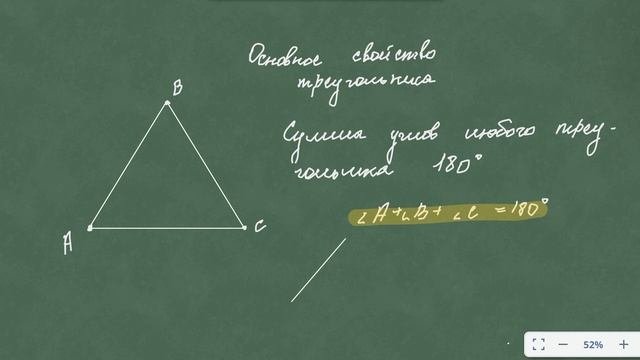 Основное свойство
треугольника
B
Сумма углов любого треу-
гольника 180°
∠A+∠B+∠C=180°
A
C
52%